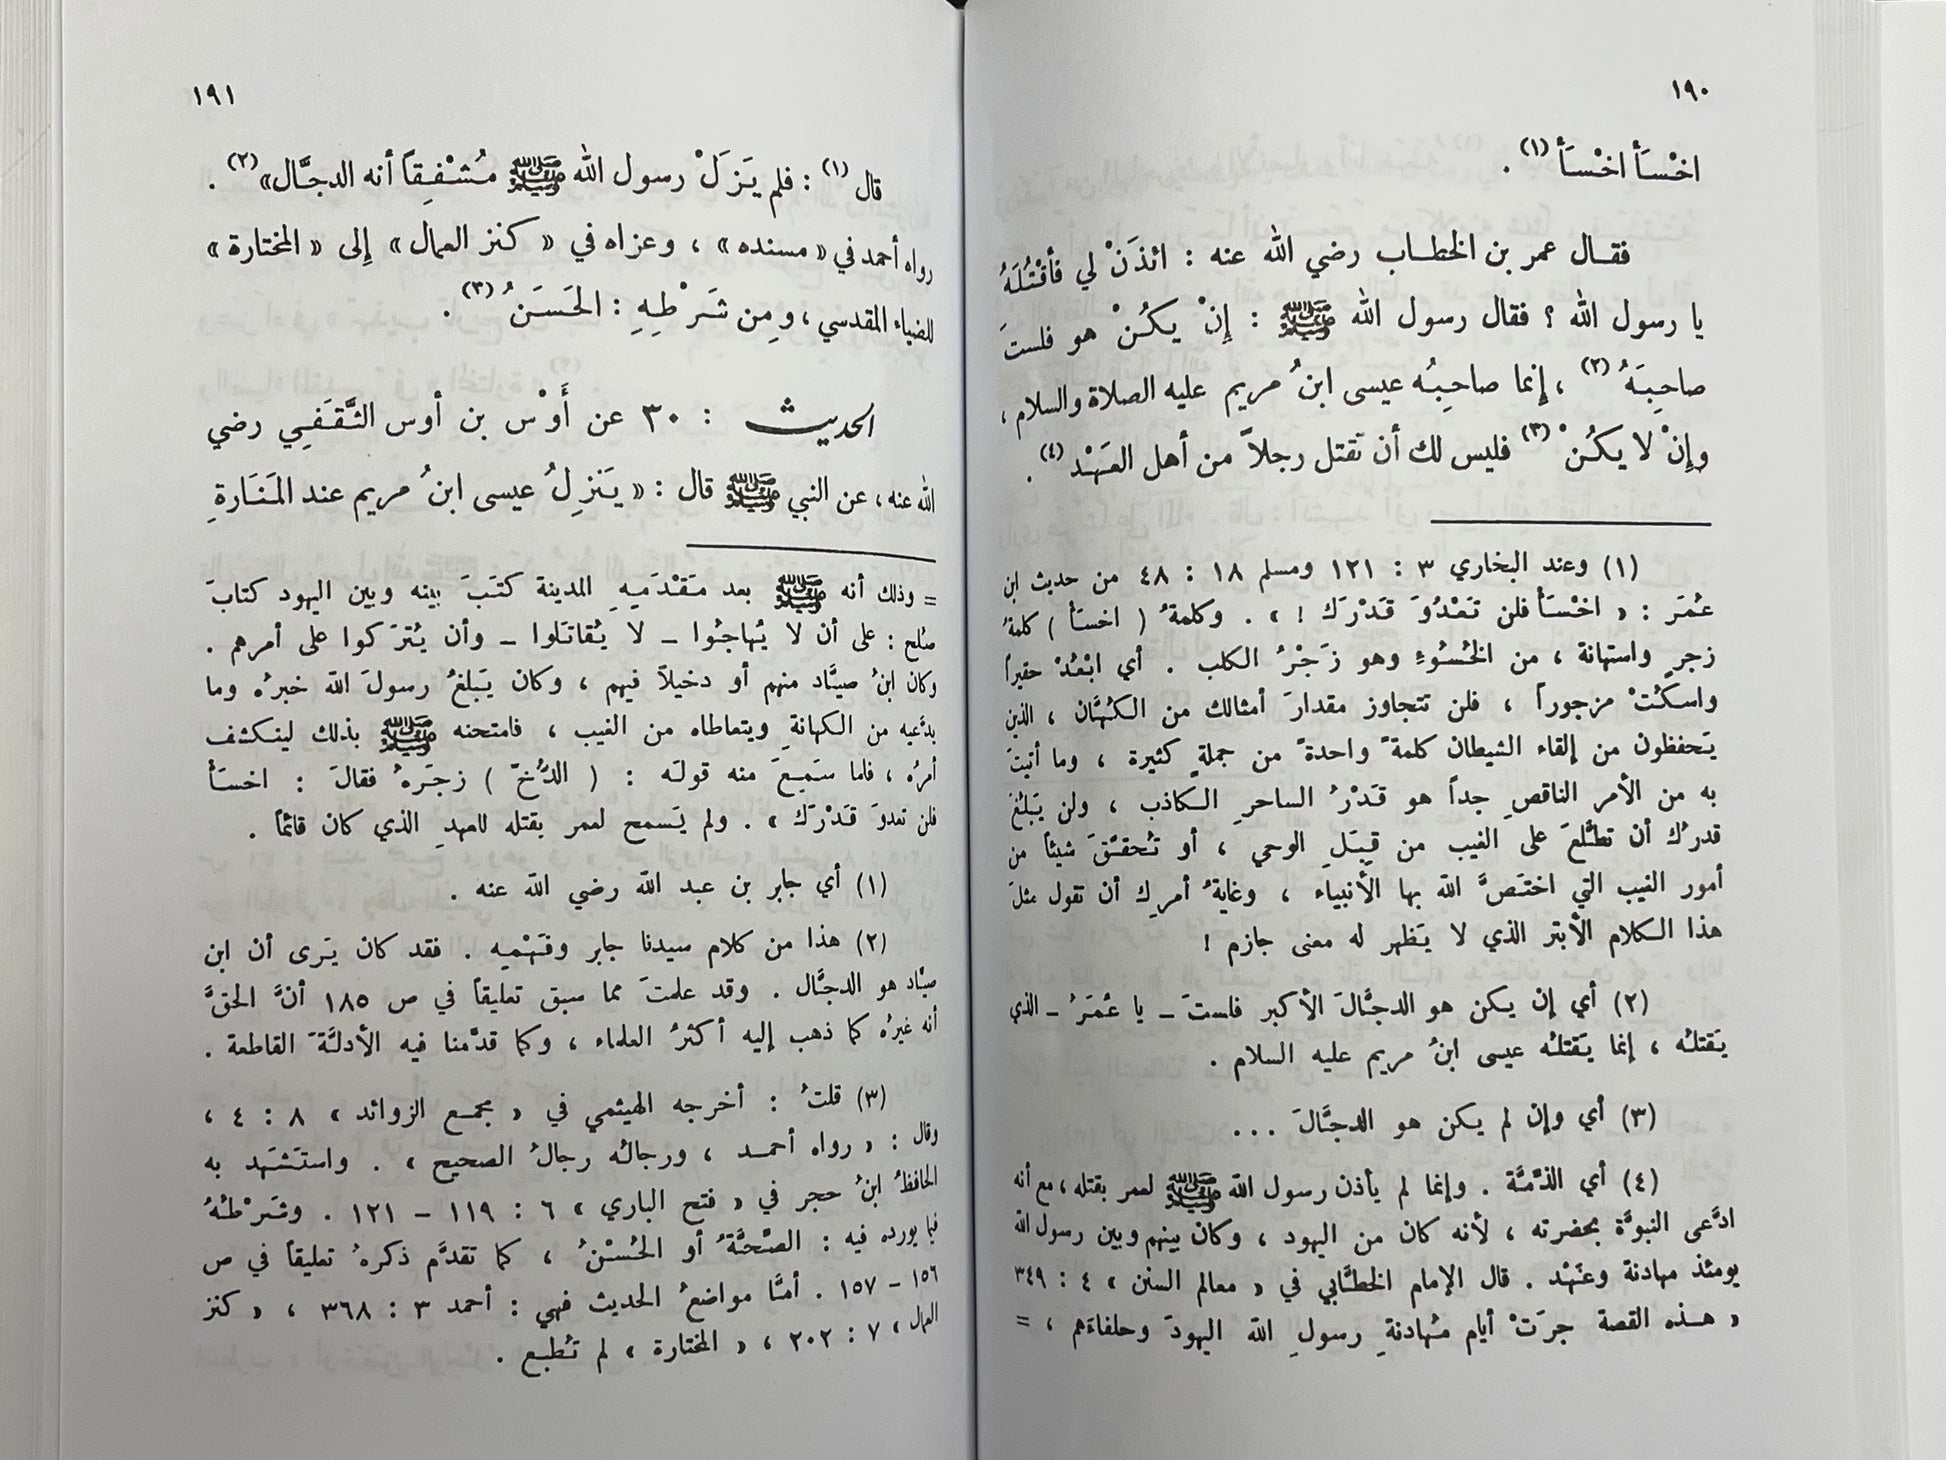 ١٩٠
اخْسَأ اخْسَأ (١) .
فقال عمر بن الخطاب رضي الله عنه : ائذَنْ لي فأقْتُلَهُ
يا رسول الله ؟ فقال رسول الله ﷺ : إنْ يكُنْ هو فلستَ
صاحِبَهُ (٢) ، إنما صاحِبُه عيسى ابنُ مريم عليه الصلاة والسلام ،
وإنْ لا يكُنْ (٣) فليس لك أن تقتل رجلاً من أهل العَهْد (٤) .
(١) وعند البخاري ٣ : ١٢١ ومسلم ١٨ : ٤٨ من حديث ابن
عُمَر : « اخْسَأ فلن تَعْدُوَ قَدْرَك ! » . وكلمةُ ( اخسَأ ) كلمةُ
زجرٍ واستهانة ، من الخُسُوءِ وهو زَجْرُ الكلب . أي ابْعُدْ حقيراً
واسكُتْ مزجوراً ، فلن تتجاوز مقدارَ أمثالك من الكُهَّان ، الذين
يَحفظون من إلقاء الشيطان كلمةً واحدةً من جملةٍ كثيرة ، وما أتيتَ
به من الأمر الناقصِ جداً هو قَدْرُ الساحرِ الكاذب ، ولن يَبلُغَ
قدرُك أن تطَّلعَ على الغيب من قِبَلِ الوحي ، أو تُحقِّقَ شيئاً من
أمور الغيب التي اختَصَّ الله بها الأنبياء ، وغايةُ أمرِك أن تقول مثلَ
هذا الكلام الأبتر الذي لا يَظهر له معنى جازم !
(٢) أي إن يكن هو الدجَّالَ الأكبر فلستَ – يا عُمَرُ – الذي
يَقتلُه ، إنما يَقتلُه عيسى ابنُ مريم عليه السلام .
(٣) أي وإن لم يكن هو الدجَّالَ ...
(٤) أي الذِّمَّة . وإنما لم يأذن رسول الله ﷺ لعمر بقتله ، مع أنه
ادَّعى النبوَّة بحضرته ، لأنه كان من اليهود ، وكان بينهم وبين رسول الله
يومئذ مهادنة وعَهْد . قال الإمام الخطَّابي في « معالم السنن » ٤ : ٣٤٩
« هذه القصة جرَتْ أيام مُهادنةِ رسولِ الله اليهودَ وحلفاءَهم ، =
١٩١
قال (١) : فلم يَزَلْ رسول الله ﷺ مُشْفِقاً أنه الدجَّال» (٢) .
رواه أحمد في « مسنده » ، وعزاه في « كنز العمال » إلى « المختارة »
للضياء المقدسي ، ومِن شَرْطِهِ : الحَسَنُ (٣) .
الحديث : ٣٠ عن أَوْس بن أوس الثَّقَفِي رضي
الله عنه ، عن النبي ﷺ قال : « يَنزِلُ عيسى ابنُ مريم عند المَنَارةِ
= وذلك أنه ﷺ بعد مَقْدَمِهِ المدينة كتَبَ بينه وبين اليهود كتابَ
صلح : على أن لا يُهاجُوا – لا يُقاتَلوا – وأن يُترَكوا على أمرهم .
وكان ابنُ صيَّاد منهم أو دخيلاً فيهم ، وكان يَبلغُ رسولَ الله خبرُه وما
يدَّعيه من الكهانةِ ويتعاطاه من الغيب ، فامتحنه ﷺ بذلك لينكشف
أمرُه ، فلما سَمِعَ منه قولَه : ( الدُّخّ ) زجَرَهُ فقالَ : اخسَأْ
فلن تعدوَ قَدْرَك » . ولم يَسمح لعمر بقتله للعهدِ الذي كان قائماً .
(١) أي جابر بن عبد الله رضي الله عنه .
(٢) هذا من كلام سيدنا جابر وفَهْمِه . فقد كان يَرى أن ابن
صيَّاد هو الدجَّال . وقد علمتَ مما سبق تعليقاً في ص ١٨٥ أنَّ الحقَّ
أنه غيرُه كما ذهب إليه أكثرُ العلماء ، وكما قدَّمنا فيه الأدلَّةَ القاطعة .
(٣) قلتُ : أخرجه الهيثمي في « مجمع الزوائد » ٨ : ٤ ،
وقال : « رواه أحمد ، ورجالُه رجالُ الصحيح » . واستَشهَد به
الحافظُ ابنُ حجر في « فتح الباري » ٦ : ١١٩ – ١٢١ . وشَرْطُهُ
فيما يورده فيه : الصِّحَّةُ أو الحُسْنُ ، كما تقدَّم ذكرهُ تعليقاً في ص
١٥٦ – ١٥٧ . أمَّا مواضعُ الحديث فهي : أحمد ٣ : ٣٦٨ ، « كنز
العمال » ٧ : ٢٠٢ ، « المختارة » لم تُطبع .